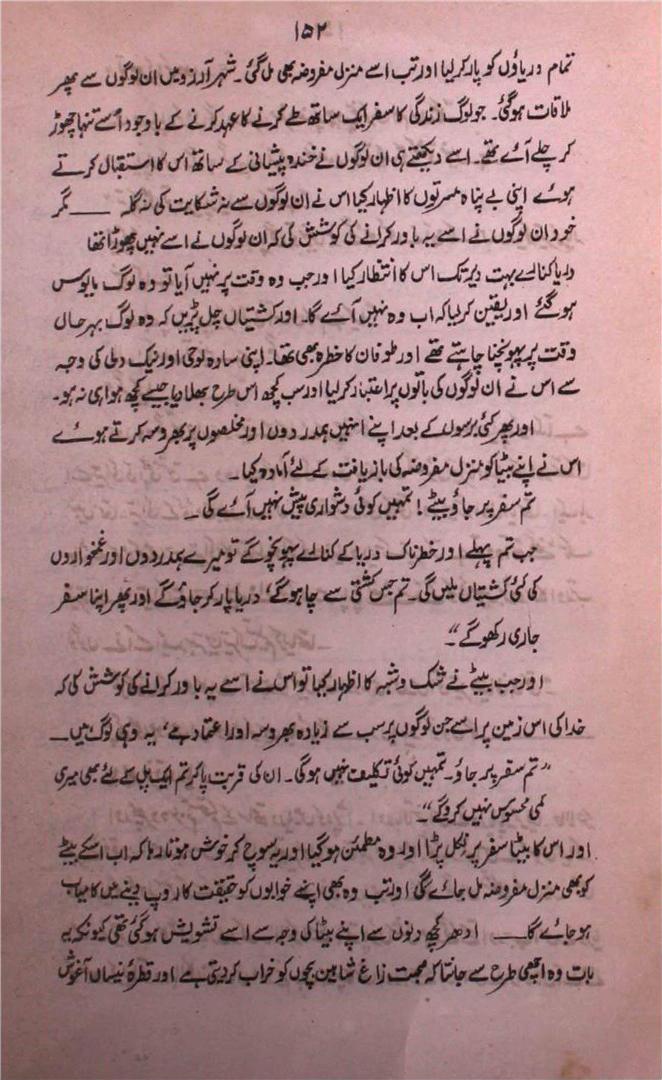 ۱۵۲
تمام دریاؤں کو پار کر لیا اور تب اسے منزل مفروضہ بھی مل گئی۔ شہر آرزو میں ان لوگوں سے پھر
ملاقات ہو گئی۔ جو لوگ زندگی کا سفر ایک ساتھ طے کرنے کا عہد کرنے کے باوجود اُسے تنہا چھوڑ
کر چلے آئے تھے۔ اسے دیکھتے ہی ان لوگوں نے خندہ پیشانی کے ساتھ اس کا استقبال کرتے
ہوئے اپنی بے پناہ مسرتوں کا اظہار کیا اس نے ان لوگوں سے نہ شکایت کی نہ گلہ ـــــ مگر
خود ان لوگوں نے اسے یہ باور کرانے کی کوشش کی کہ ان لوگوں نے اسے نہیں چھوڑا تھا
دریا کنارے بہت دیر تک اس کا انتظار کیا اور جب وہ وقت پر نہیں آیا تو وہ لوگ مایوس
ہو گئے اور یقین کر لیا کہ اب وہ نہیں آئے گا۔ اور کشتیاں چل پڑیں کہ وہ لوگ بہرحال
وقت پر پہونچنا چاہتے تھے اور طوفان کا خطرہ بھی تھا۔ اپنی سادہ لوحی اور نیک دلی کی وجہ
سے اس نے ان لوگوں کی باتوں پر اعتبار کر لیا اور سب کچھ اس طرح بھلا دیا جیسے کچھ ہوا ہی نہ ہو۔
اور پھر کئی برسوں کے بعد اپنے انہیں ہمدردوں اور مخلصوں پر بھروسہ کرتے ہوئے
اس نے اپنے بیٹا کو منزل مفروضہ کی بازیافت کے لئے آمادہ کیا۔
تم سفر پر جاؤ بیٹے! تمہیں کوئی دشواری پیش نہیں آئے گی۔
جب تم پہلے اور خطرناک دریا کے کنارے پہونچو گے تو میرے ہمدردوں اور غمخواروں
کی کئی کشتیاں ملیں گی۔ تم جس کشتی سے چاہو گے، دریا پار کر جاؤ گے اور پھر اپنا سفر
جاری رکھو گے"۔
اور جب بیٹے نے شک و شبہ کا اظہار کیا تو اس نے اسے یہ باور کرانے کی کوشش کی کہ
خدا کی اس زمین پر اسے جن لوگوں پر سب سے زیادہ بھروسہ اور اعتماد ہے، یہ وہی لوگ ہیں۔
"تم سفر پر جاؤ۔ تمہیں کوئی تکلیف نہیں ہوگی۔ ان کی قربت پا کر تم ایک پل کے لئے بھی میری
کمی محسوس نہیں کرو گے"۔
اور اس کا بیٹا سفر پر نکل پڑا اور وہ مطمئن ہو گیا اور یہ سوچ کر خوش ہوتا رہا کہ اب اسکے بیٹے
کو بھی منزل مفروضہ مل جائے گی اور تب وہ بھی اپنے خوابوں کو حقیقت کا روپ دینے میں کامیاب
ہو جائے گا ـــــ ادھر کچھ دنوں سے اپنے بیٹا کی وجہ سے اسے تشویش ہو گئی تھی کیونکہ یہ
بات وہ اچھی طرح سے جانتا کہ محبت زاغ شاہین بچوں کو خراب کر دیتی ہے اور قطرۂ نیساں آغوش